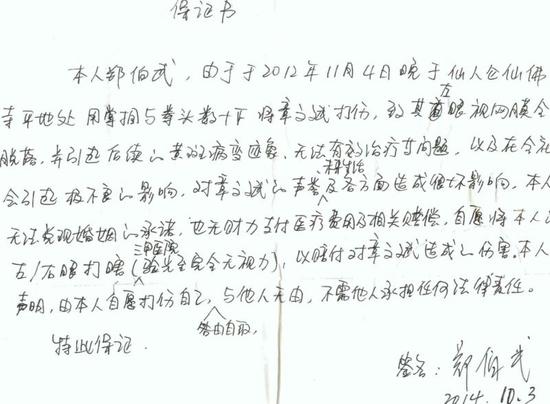 保证书
本人郑伯武，由于于2012年11月4日晚于仙人仑仙佛
寺平地处用掌掴与拳头数十下将章文斌打伤，致其左眼视网膜全
脱落，并引起后续的黄斑病变迹象、无法有效治疗等问题，以及在今社
会引起极不良的影响，对章文斌的声誉及各方面造成很坏影响，本人
无法兑现婚姻的承诺，也无财力支付医疗费用及相关赔偿，自愿将本人
左/右眼打瞎(三甲医院验光至完全无视力)，以赔付对章文斌造成的伤害。本人
声明，由本人自愿打伤自己，与他人无由，不需他人承担任何法律责任。
咎由自取。
特此保证.
签名：郑伯武
2014.10.3